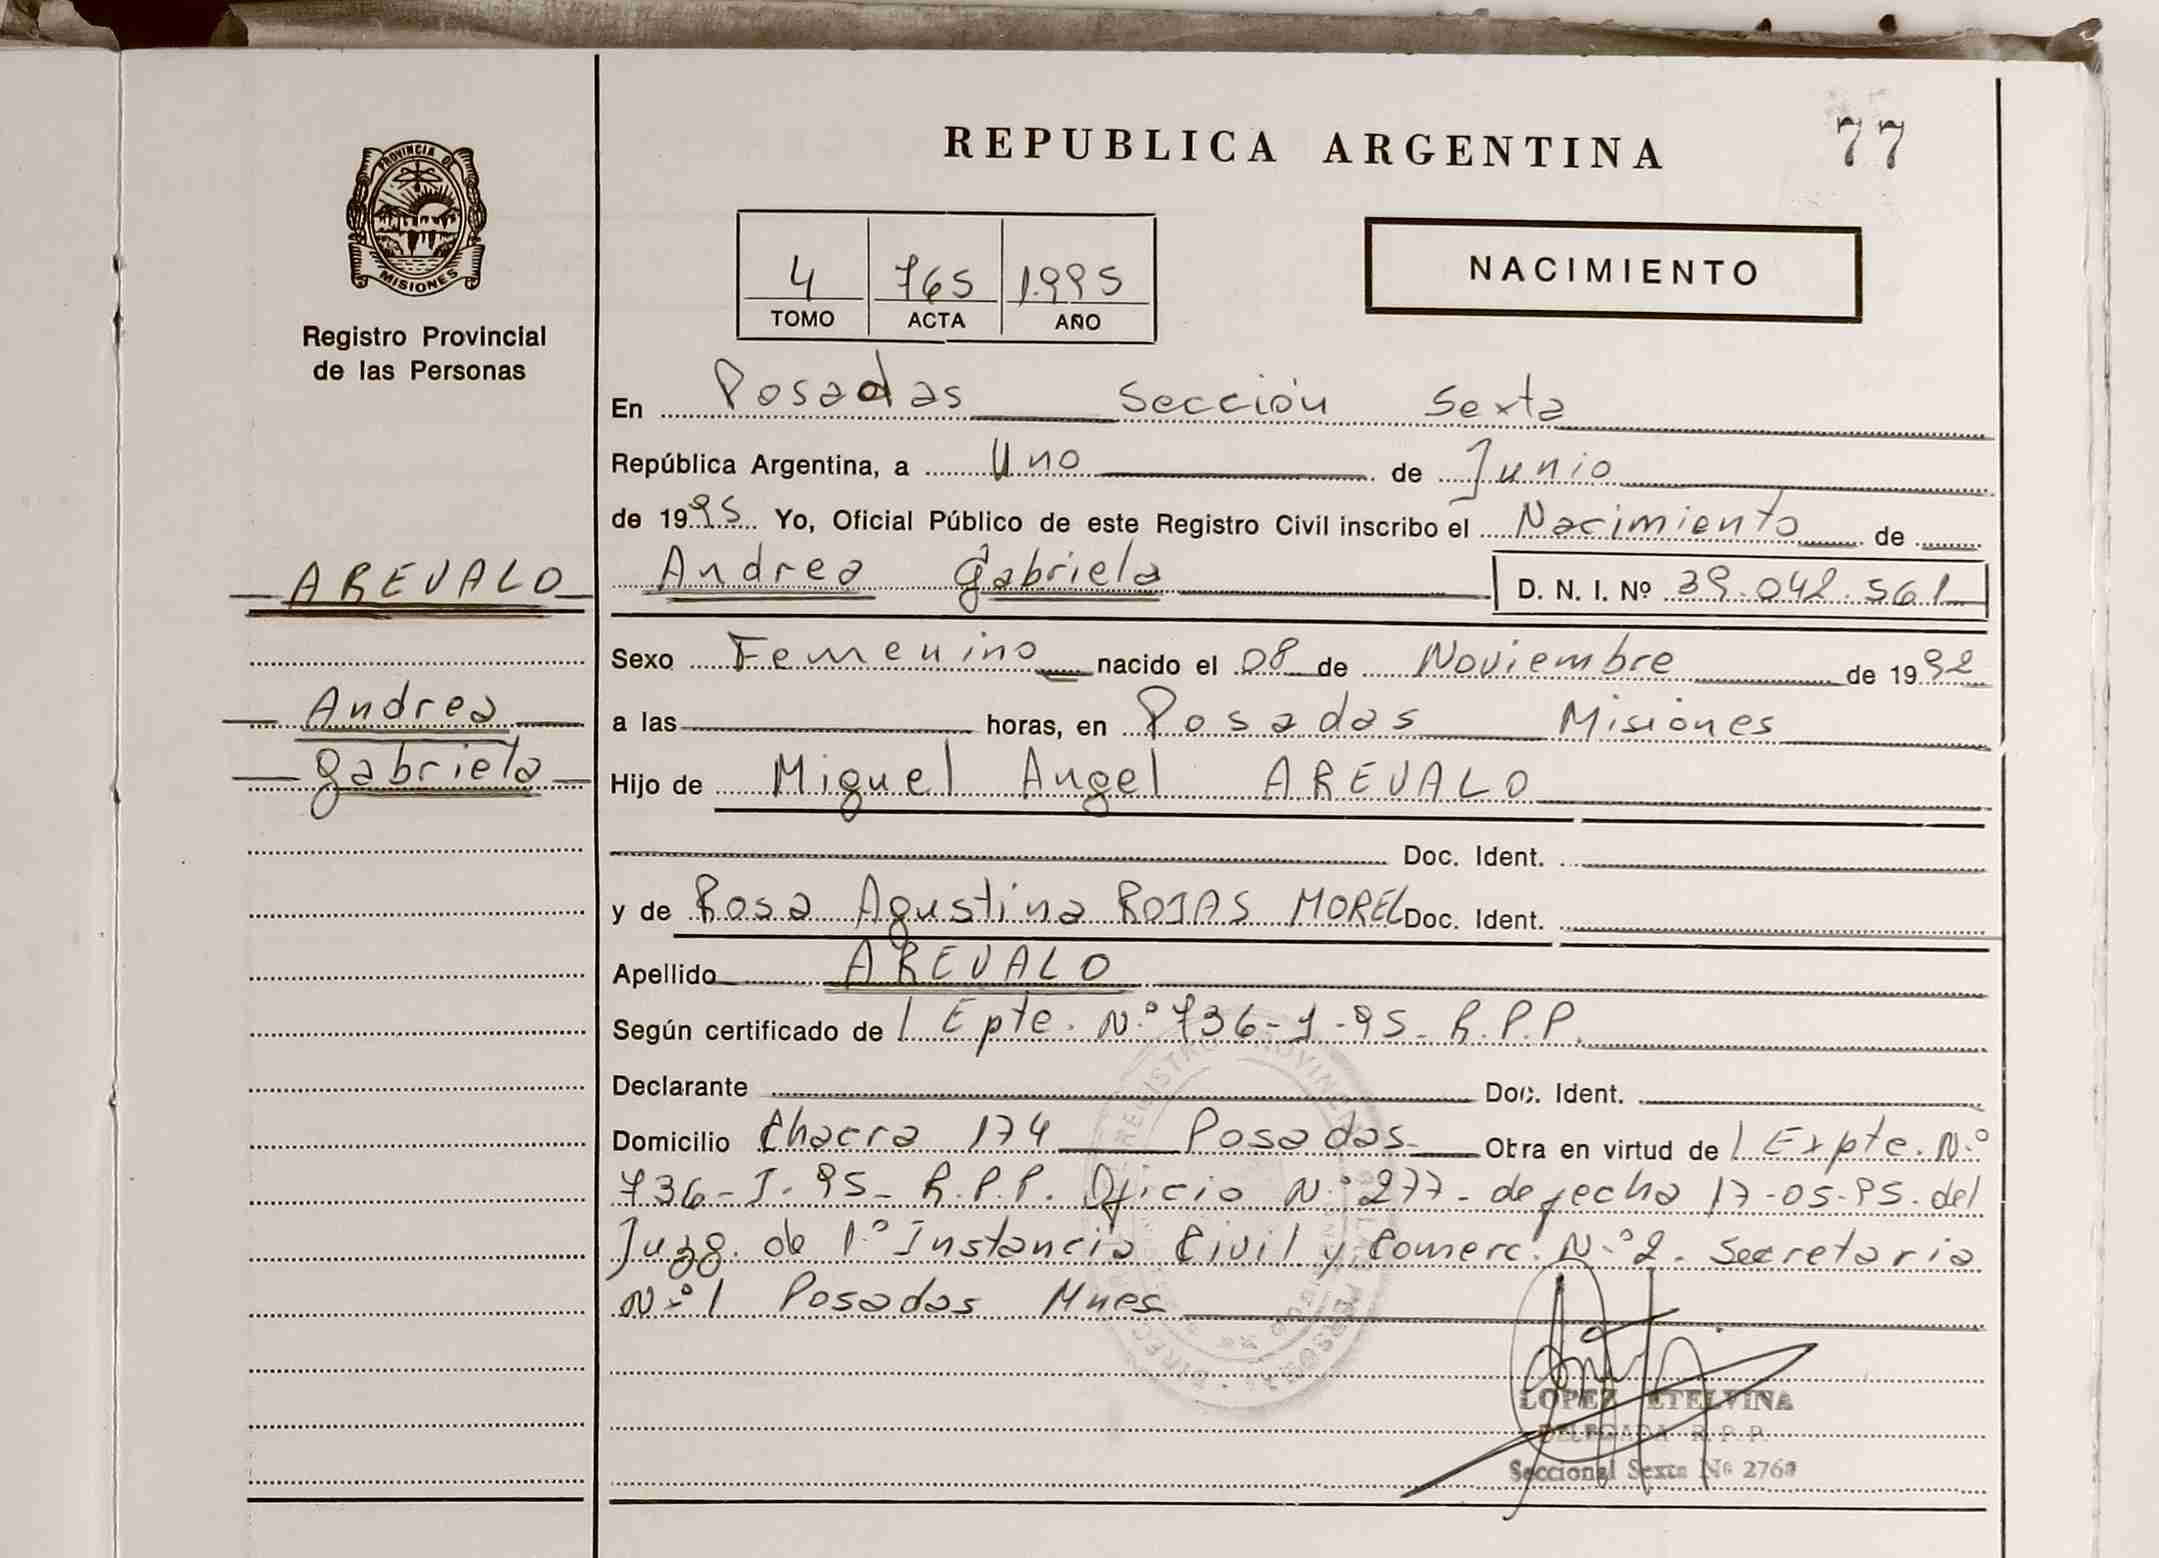 REPUBLICA ARGENTINA
77
PROVINCIA DE
MISIONES
Registro Provincial
de las Personas
4 765 1.995
TOMO ACTA AÑO
NACIMIENTO
En Posadas Sección Sexta
República Argentina, a Uno de Junio
de 1995 Yo, Oficial Público de este Registro Civil inscribo el Nacimiento de
AREVALO
Andrea Gabriela D. N. I. Nº 39.042.561
Sexo Femenino nacido el 08 de Noviembre de 1992
Andrea
a las horas, en Posadas Misiones
Gabriela
Hijo de Miguel Angel AREVALO
Doc. Ident.
y de Rosa Agustina ROJAS MOREL Doc. Ident.
Apellido AREVALO
Según certificado de l Epte. N.º 736-I-95- R.P.P.
Declarante Doc. Ident.
Domicilio Chacra 174 Posadas Obra en virtud de l Expte. N.º
736-I-95- R.P.P. Oficio N.º 277- de fecha 17-05-95. del
Juzg. de 1.º Instancia Civil y Comerc. N.º 2. Secretaria
N.º 1 Posadas Mnes
LOPEZ ETELVINA
DELEGADA R.P.P.
Seccional Sexta Nº